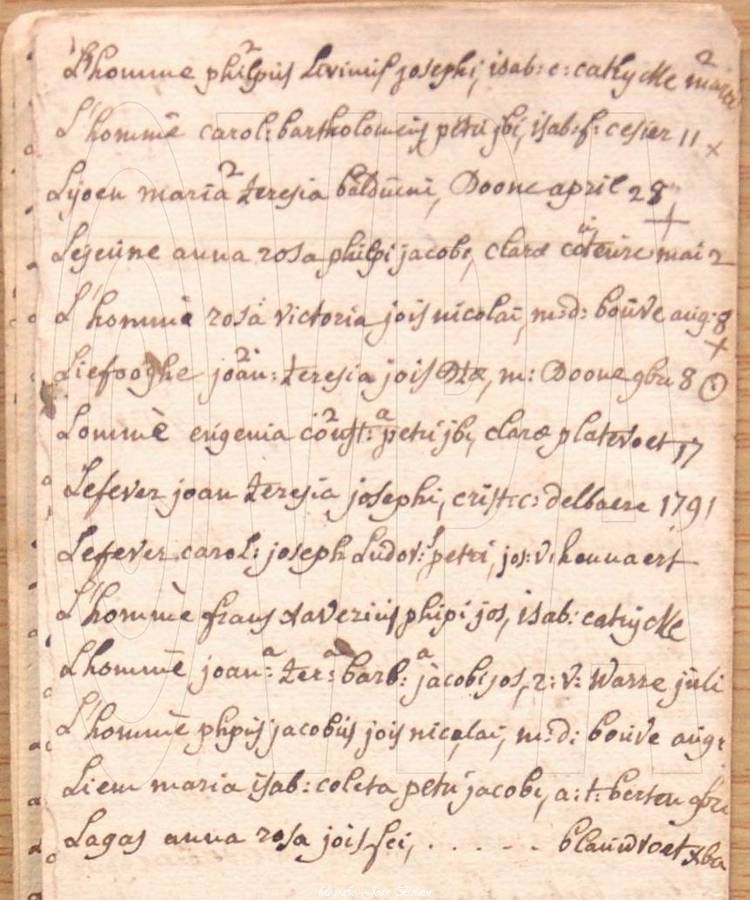 L'homme philpus Livinus josephi, isab: c: cathycke
L'homme carol: bartholomeus petri jbi, isab: f: cesier 11 x
Lyoen maria teresia balduini, Doone april 28 +
Lejeune anna rosa philpi jacobi, claræ coteure mai 2
L'hommè rosa victoria jois nicolai, m: d: bouve aug: 8 +
Liefooghe joan: teresia jois Btæ, m: Doone 9bri 8
Lommè eugenia const: petri jbi, claræ platevoet 17
Lefever joan teresia josephi, crist: c: delbaere 1791
Lefever carol: joseph Ludov: petri, jos: v: hounaert
L'hommè frans xaverius phipi jos, isab: catrycke
Lhommè joan: ter: barb: jacobi jos, r: v: Warre juli
L'hommè phpus jacobus jois nicolai, m: d: bouve aug:
Liem maria isab: coleta petri jacobi, a: t: berten 9bri
Lagas anna rosa jois fci, . . . . . . blauwvoet xbr